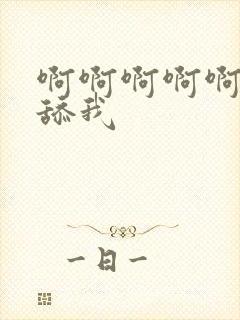 啊啊啊啊啊
舔我
一日一